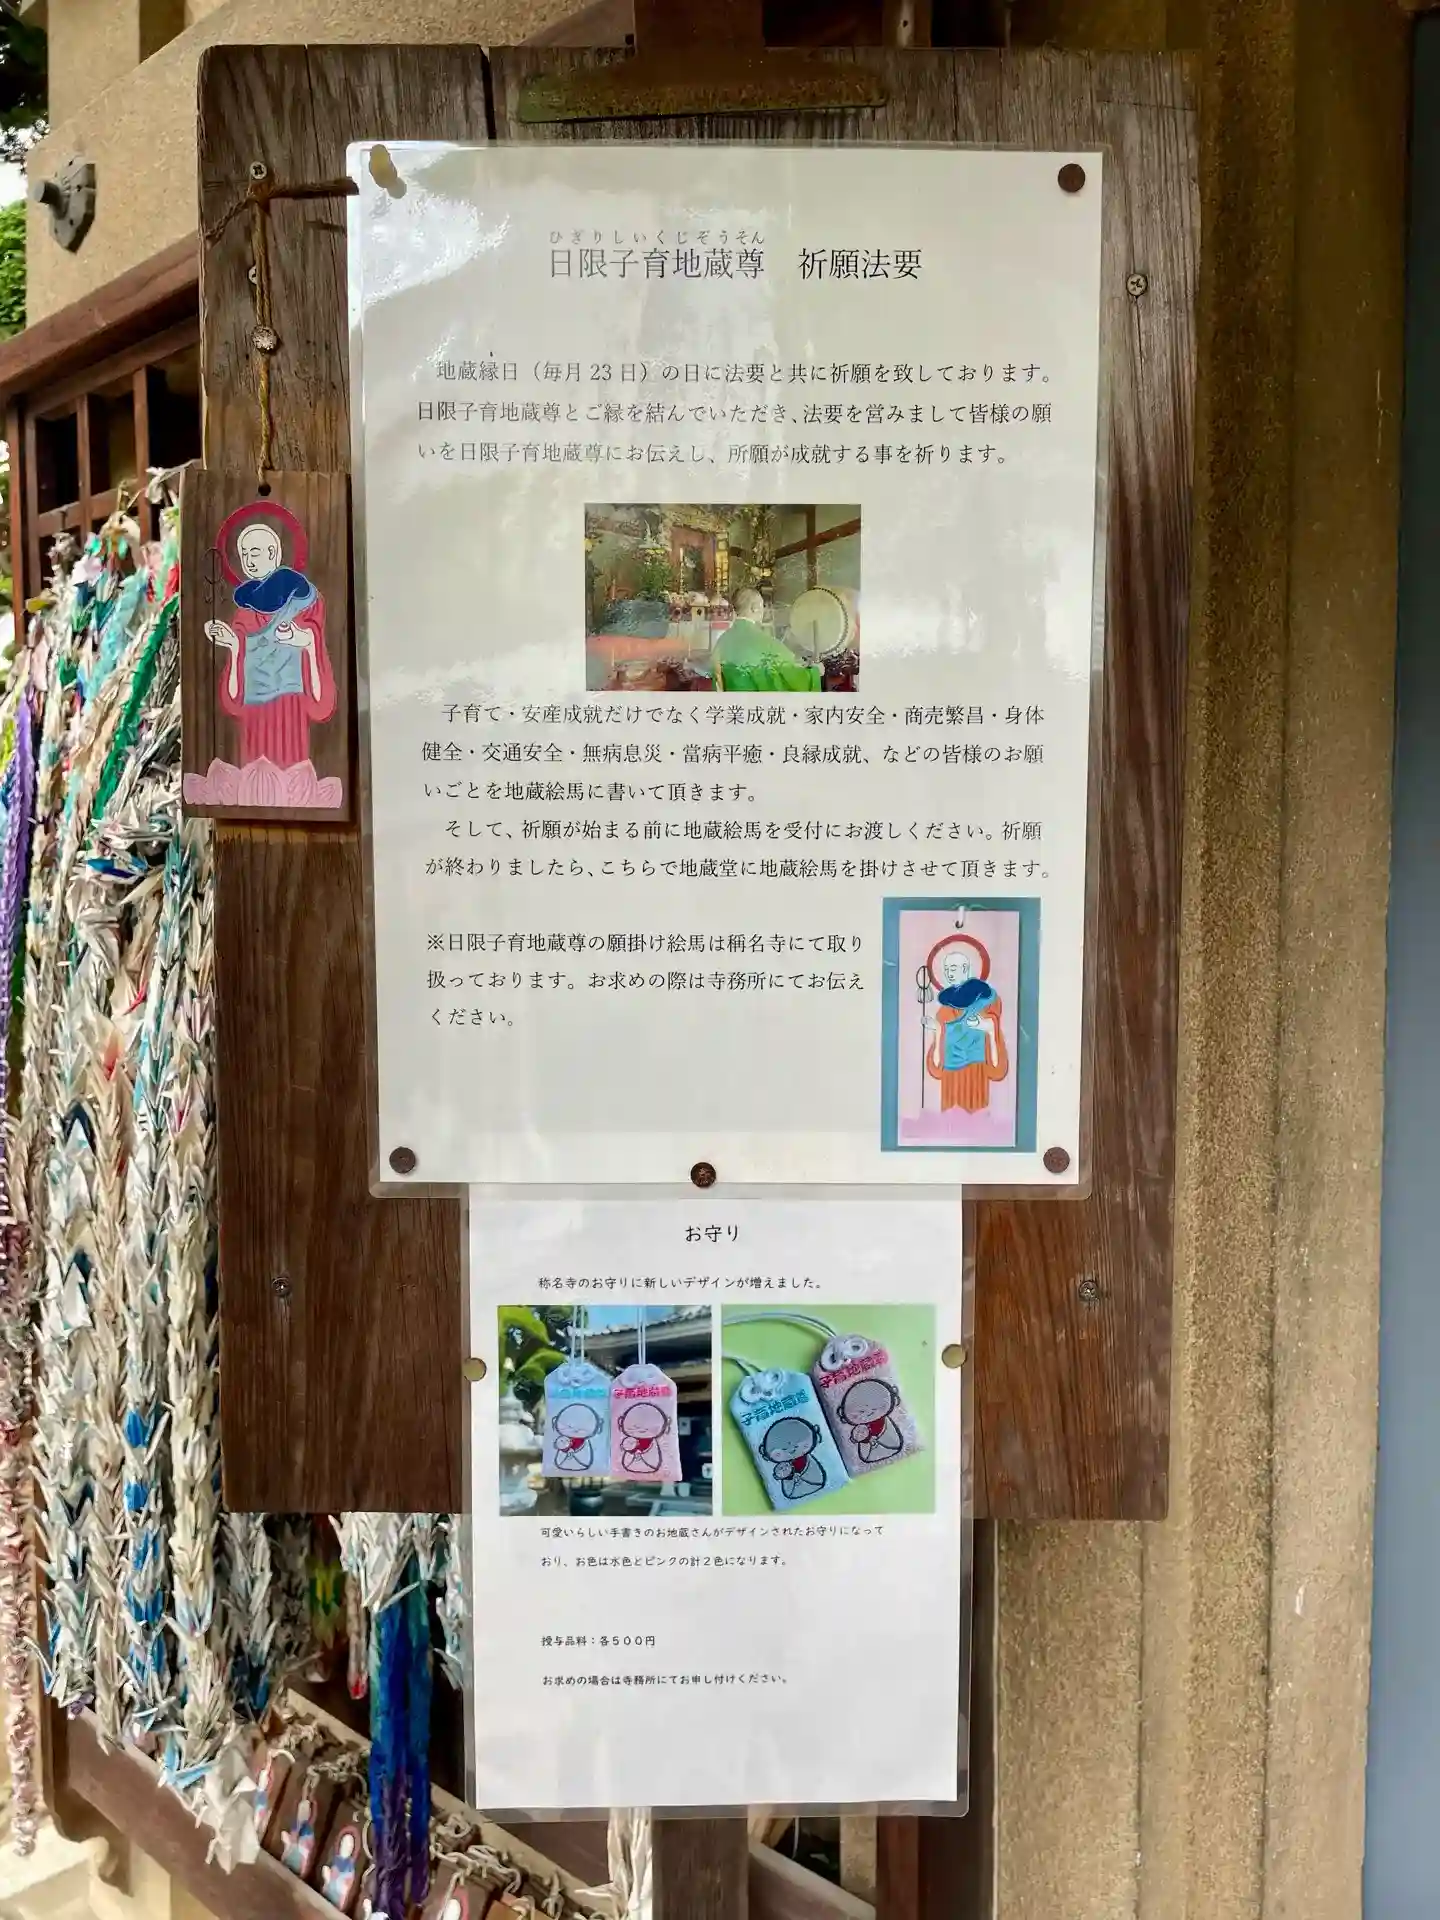 ひぎりしいくじぞうそん
日限子育地蔵尊　祈願法要
地蔵縁日（毎月 23 日）の日に法要と共に祈願を致しております。
日限子育地蔵尊とご縁を結んでいただき、法要を営みまして皆様の願
いを日限子育地蔵尊にお伝えし、所願が成就する事を祈ります。
子育て・安産成就だけでなく学業成就・家内安全・商売繁昌・身体
健全・交通安全・無病息災・當病平癒・良縁成就、などの皆様のお願
いごとを地蔵絵馬に書いて頂きます。
そして、祈願が始まる前に地蔵絵馬を受付にお渡しください。祈願
が終わりましたら、こちらで地蔵堂に地蔵絵馬を掛けさせて頂きます。
※日限子育地蔵尊の願掛け絵馬は稱名寺にて取り
扱っております。お求めの際は寺務所にてお伝え
ください。
お守り
称名寺のお守りに新しいデザインが増えました。
子育地蔵尊
子育地蔵尊
子育地蔵尊
子育地蔵尊
可愛いらしい手書きのお地蔵さんがデザインされたお守りになって
おり、お色は水色とピンクの計２色になります。
授与品料：各５００円
お求めの場合は寺務所にてお申し付けください。